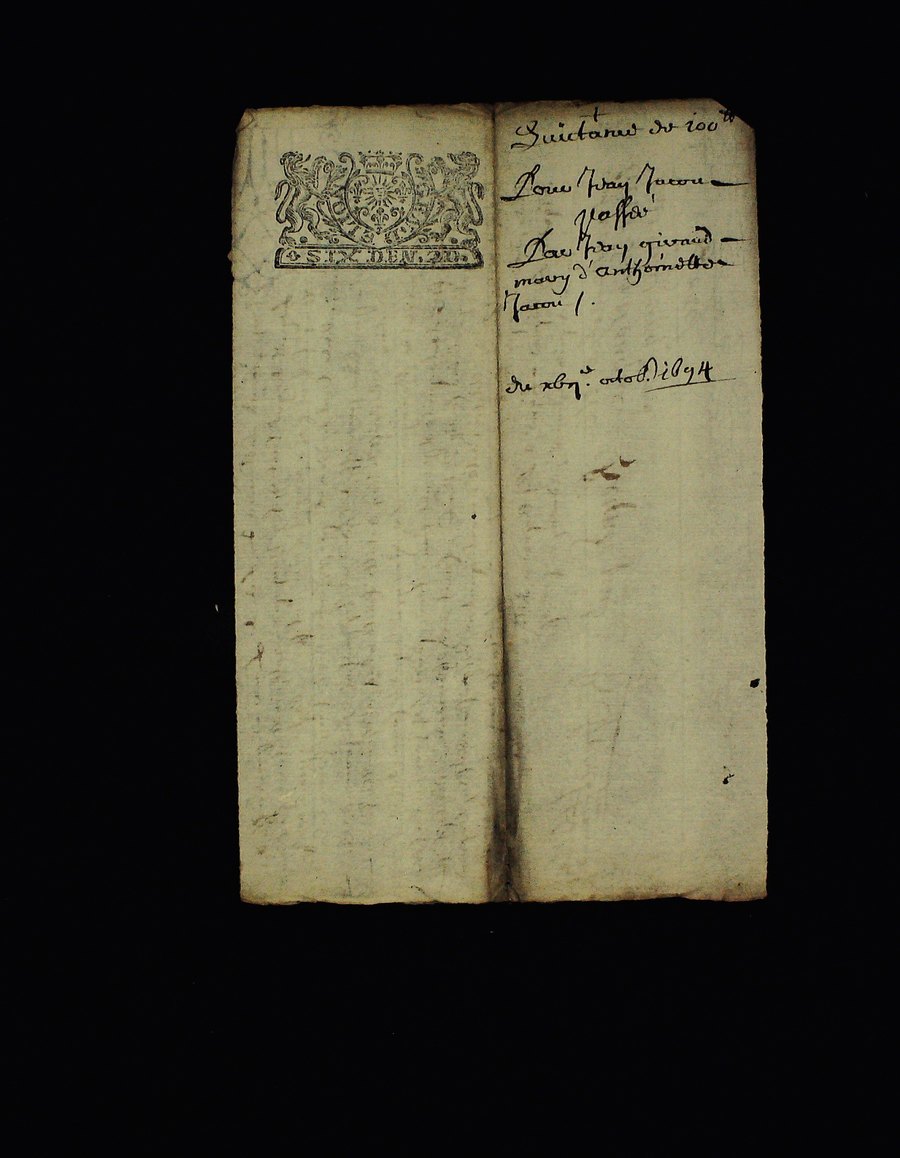 SIX DEN. 2D.
Quictance de 100 ₶
Pour Jean Jacou
passée
Par Jean giraud
mary d'anthoinette
Jacou /.
du xbije octob. 1694